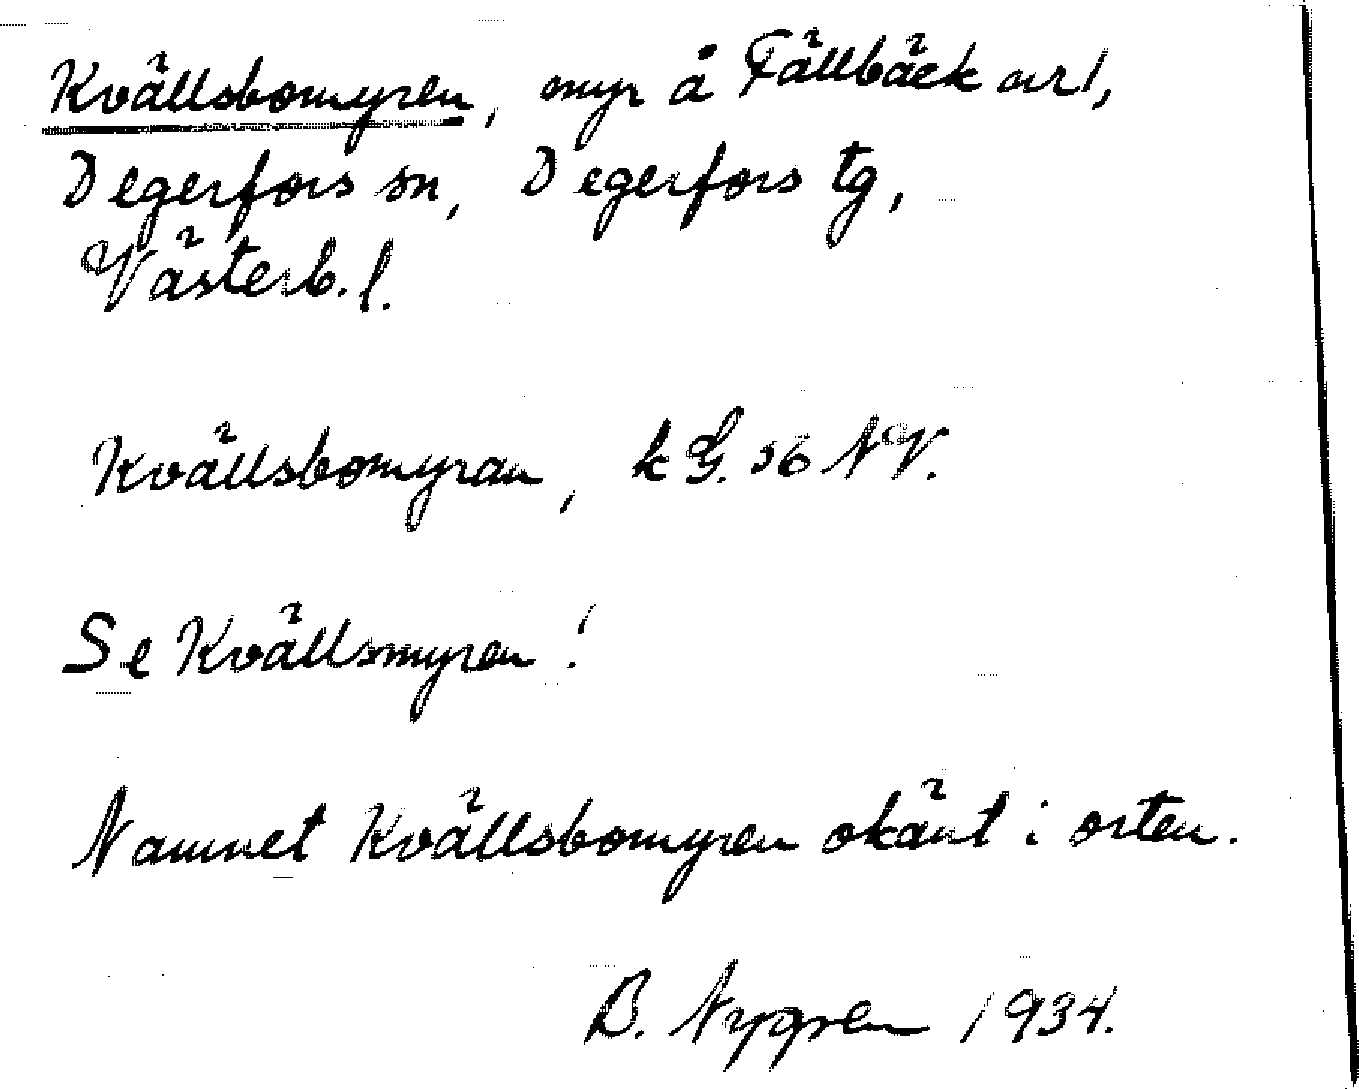 Kvällsbomyren, myr å Fällbäck avr1,
Degerfors sn, Degerfors tg,
Västerb. l.
Kvällsbomyran, k G. 56 NV.
Se Kvällsmyren!
Namnet Kvällsbomyren okänt i orten.
B. Nygren 1934.